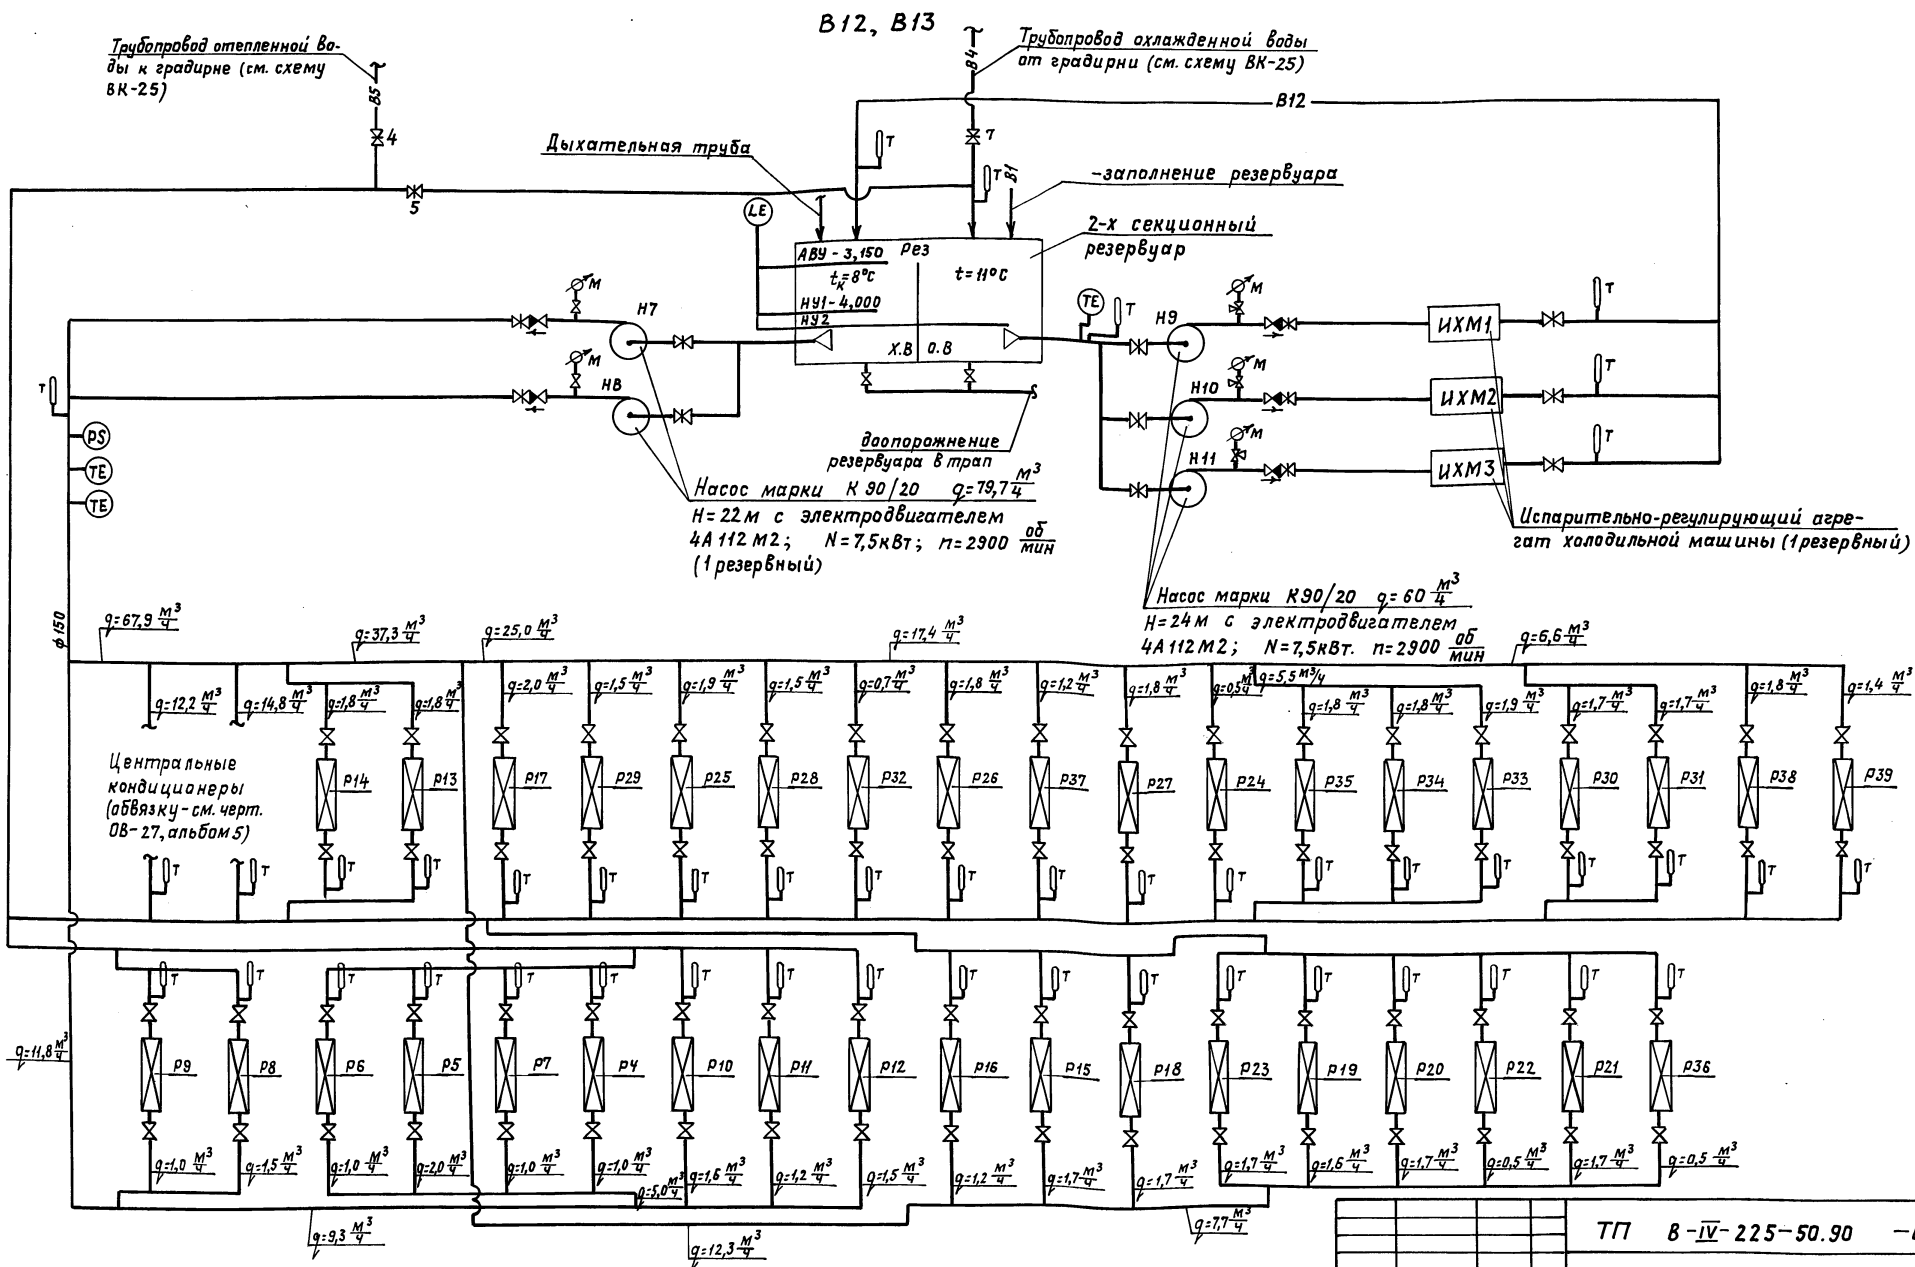 В12, В13
Трубопровод отепленной во-
ды к градирне (см. схему
ВК-25)
В5
4
5
Трубопровод охлажденной воды
от градирни (см. схему ВК-25)
В4
В12
7
Т
Т
В1
Дыхательная труба
-заполнение резервуара
2-х секционный
резервуар
LE
АВУ-3,150
Рез
tк=8°С
t=11°С
НУ1-4,000
НУ2
Х.В
О.В
М
Н7
М
Н8
TE
Т
Н9
М
Н10
М
Н11
М
ИХМ1
Т
ИХМ2
Т
ИХМ3
Т
Т
PS
TE
TE
доопорожнение
резервуара в трап
Насос марки К 90/20 q=79,7 м³/ч
Н=22м с электродвигателем
4А 112 М2; N=7,5кВт; n=2900 об/мин
(1 резервный)
Испарительно-регулирующий агре-
гат холодильной машины (1 резервный)
Насос марки К90/20 q=60 м³/ч
Н=24м с электродвигателем
4А 112 М2; N=7,5кВт. n=2900 об/мин
ϕ150
q=67,9 м³/ч
q=37,3 м³/ч
q=25,0 м³/ч
q=17,4 м³/ч
q=6,6 м³/ч
q=12,2 м³/ч
q=14,8 м³/ч
q=1,8 м³/ч
q=1,8 м³/ч
q=2,0 м³/ч
q=1,5 м³/ч
q=1,9 м³/ч
q=1,5 м³/ч
q=0,7 м³/ч
q=1,8 м³/ч
q=1,2 м³/ч
q=1,8 м³/ч
q=0,5 м³/ч
q=5,5 м³/ч
q=1,8 м³/ч
q=1,8 м³/ч
q=1,9 м³/ч
q=1,7 м³/ч
q=1,7 м³/ч
q=1,8 м³/ч
q=1,4 м³/ч
Центральные
кондиционеры
(обвязку-см. черт.
ОВ-27, альбом 5)
Р14
Р13
Р17
Р29
Р25
Р28
Р32
Р26
Р37
Р27
Р24
Р35
Р34
Р33
Р30
Р31
Р38
Р39
Т Т Т Т Т Т Т Т Т Т Т Т Т Т Т Т Т Т Т Т
Т Т Т Т Т Т Т Т Т Т Т Т Т Т Т Т Т Т
q=11,8 м³/ч
Р9
Р8
Р6
Р5
Р7
Р4
Р10
Р11
Р12
Р16
Р15
Р18
Р23
Р19
Р20
Р22
Р21
Р36
q=1,0 м³/ч
q=1,5 м³/ч
q=1,0 м³/ч
q=2,0 м³/ч
q=1,0 м³/ч
q=1,0 м³/ч
q=5,0 м³/ч
q=1,6 м³/ч
q=1,2 м³/ч
q=1,5 м³/ч
q=1,2 м³/ч
q=1,7 м³/ч
q=1,7 м³/ч
q=1,7 м³/ч
q=1,6 м³/ч
q=1,7 м³/ч
q=0,5 м³/ч
q=1,7 м³/ч
q=0,5 м³/ч
q=9,3 м³/ч
q=12,3 м³/ч
q=7,7 м³/ч
ТП В-IV-225-50.90